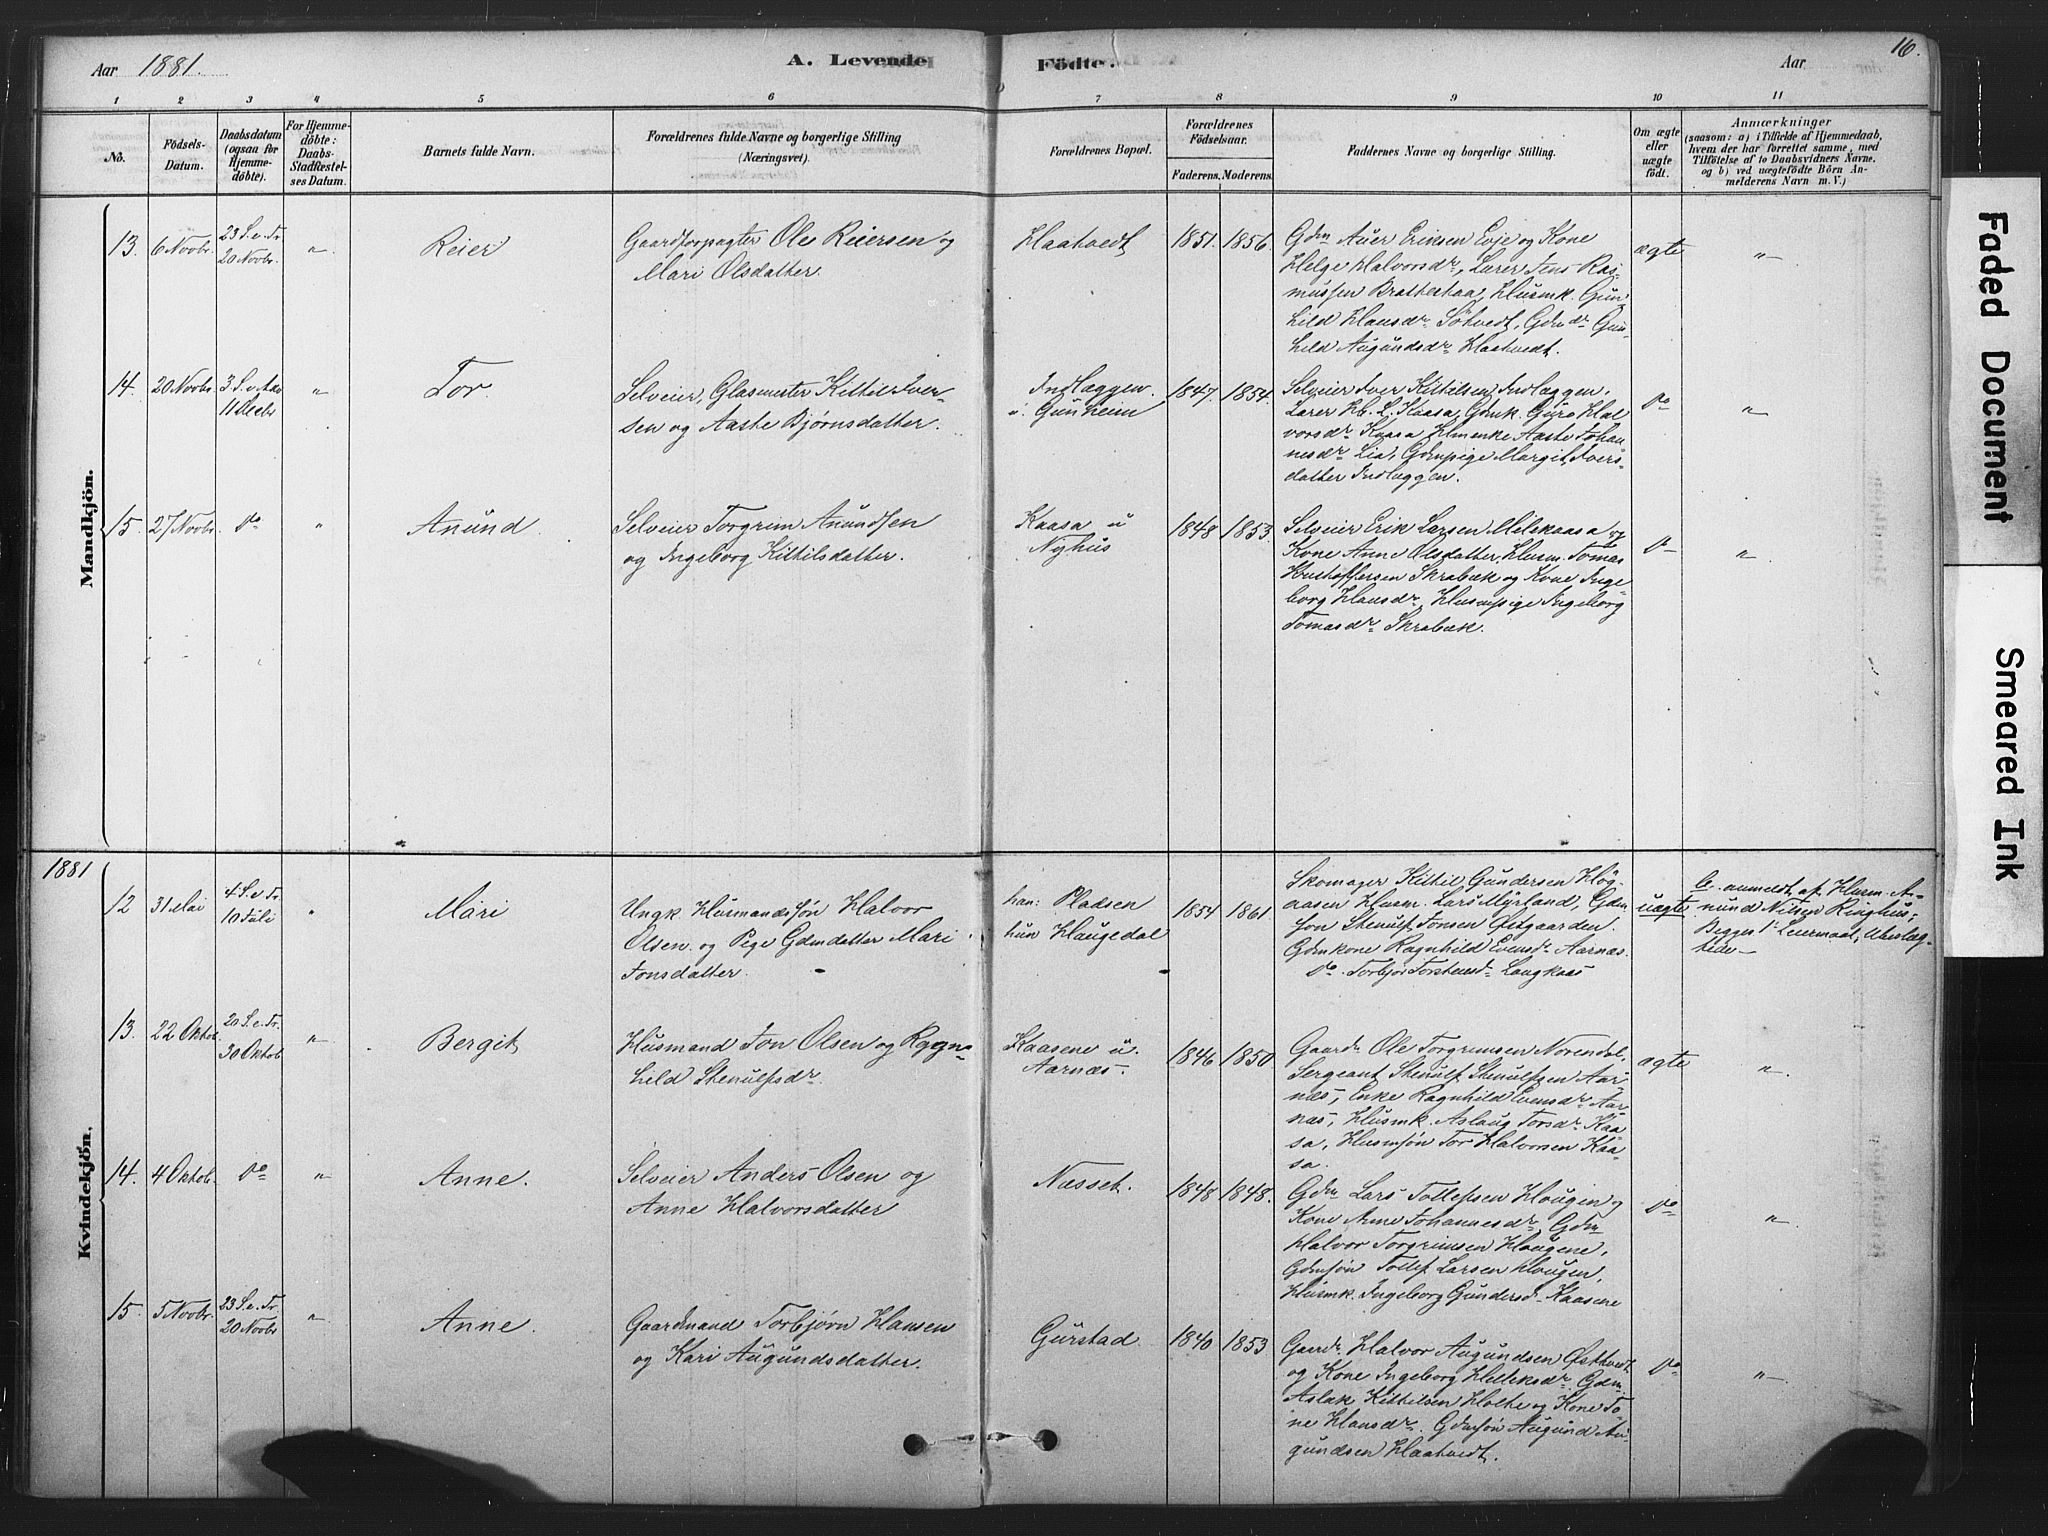 Aar 1881.
A. Levende Födte.
Aar
16.
1 2 3 4 5 6 7 8 9 10 11
No.
Födsels-
Datum.
Daabsdatum
(ogsaa for
Hjemme-
döbte).
For Hjemme-
döbte:
Daabs-
Stadfæstel-
ses Datum.
Barnets fulde Navn.
Forældrenes fulde Navne og borgerlige Stilling
(Næringsvei).
Forældrenes Bopæl.
Forældrenes
Födselsaar.
Faderens. Moderens.
Faddernes Navne og borgerlige Stilling.
Om ægte
eller
uægte
födt.
Anmærkninger
(saasom: a) i Tilfælde af Hjemmedaab,
hvem der har forrettet samme, med
Tilföielse af to Daabsvidners Navne.
og b) ved uægtefödte Börn An-
melderens Navn m. V.)
Mandkjön.
13. 6 Novbr.
23 S. e. Tr.
20 Novbr.
"
Reier
Gaardforpagter Ole Reiersen og
Mari Olsdatter.
Haatvedt
1851. 1856.
Gdm Auer Eriksen Evje og Kone
Helge Halvorsdr, Lærer Jens Ras-
mussen Brattestaa, Husmk. Gun-
hild Hansdr Söhvedt, Gdmdr Gun-
hild Augundsdr Haatvedt.
ægte
"
14. 20 Novbr.
3 S. i Adv
11 Decbr
"
Tor.
Selveier, Glasmester Kittil Iver-
sen og Aaste Bjørnsdatter.
Indlæggen.
u. Gunheim
1847. 1854.
Selveier Iver Kittilsen Indlæggen,
Lærer H. L. Kaasa, Gdmk. Guro Hal
vorsdr Kaasa Hmenke Aaste Johan-
nesdr Lia, Gdmpige Margit Ivers-
datter Indlæggen.
do
"
15. 27 Novbr.
do
"
Anund.
Selveier Torgrim Anundsen
og Ingeborg Kittilsdatter.
Kaasa u
Nyhus
1848 1853.
Selveier Erik Larsen Melekaasa og
Kone Anne Olsdatter, Husm. Tomas
Kristoffersen Skrabæk og Kone Inge
borg Hansdr, Husmpige Ingeborg
Tomasdr Skrabæk.
do
"
1881
Kvindekjön.
12 31 Mai
4 S. e Tr.
10 Juli
"
Mari
Ungk. Husmandssøn Halvor
Olsen og Pige Gdmdatter Mari
Jonsdatter.
han: Pladsen
hun Haugedal
1854 1861
Skomager Kittil Gundersen Hög-
aasen Husm. Lars Myrland, Gdm
søn Stenulf Jonsen Østgaarden.
Gdmkone Ragnhild Evensdr Aarnæs.
do Torbjør Torstensdr Langkaas
uægte
b. anmeldt af Husm. A-
nund Nilsen Ringhus;
Begges 1ste Leiermaal, Ubeslæg-
tede—
13. 22 Oktob.
20 S. e. Tr.
30 Oktob
"
Bergit
Husmand Jon Olsen og Ragn-
hild Stenulfsdr.
Kaasene u.
Aarnæs.
1846 1850.
Gaardm Ole Torgrimsen Norendal,
Sergeant Stenulf Stenulfsen Aar-
næs, Enke Ragnhild Evensdr Aar-
næs, Husmk. Aslaug Torsdr Kaa
sa, Husmsøn Tor Halvorsen Kaa-
sa.
ægte
"
14. 4 Oktob.
do
"
Anne.
Selveier Anders Olsen og
Anne Halvorsdatter
Næsset.
1848. 1848.
Gdm Lars Tollefsen Hougen og
Kone Anne Johannesdr, Gdm
Halvor Torgrimsen Hougene,
Gdmsøn Tollef Larsen Hougen,
Husmk. Ingeborg Gundersd Kaasene
do
"
15. 5 Novbr.
23 S. e. Tr.
20 Novbr
"
Anne.
Gaardmand Torbjørn Hansen
og Kari Augundsdatter.
Gurstad.
1840 1853
Gaardm Halvor Augundsen Østtvedt
og Kone Ingeborg Halvorsdr, Gdm
Aslak Kittilsen Holte og Kone To
ne Hansdr. Gdmsøn Augund Au-
gundsen Haatvedt.
do
"
Faded Document
Smeared Ink